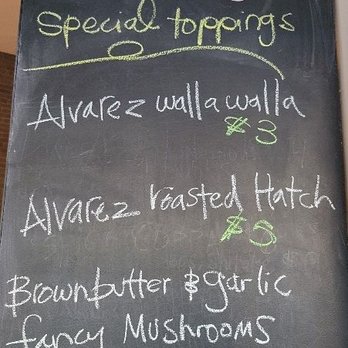 Special toppings
Alvarez walla walla
$3
Alvarez roasted Hatch
$5
Brownbutter & garlic
fancy Mushrooms